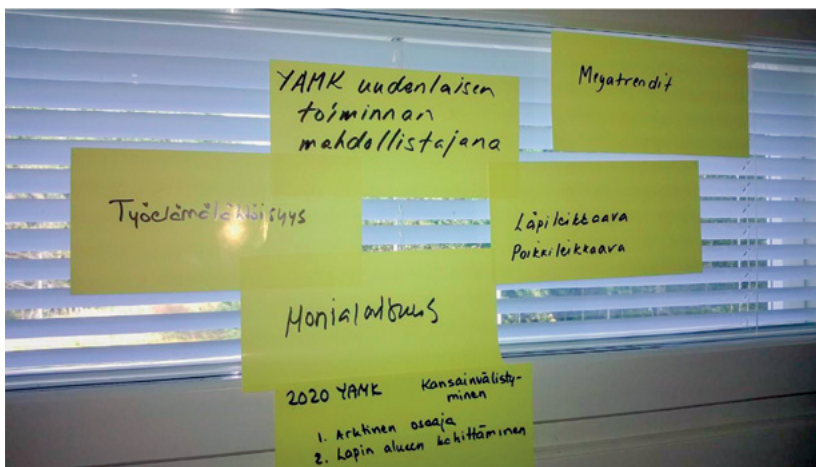 YAMK uudenlaisen
toiminnan
mahdollistajana
Megatrendit
Työelämälähtöisyys
Läpileikkaava
Poikkileikkaava
Monialaisuus
2020 YAMK Kansainvälisty-
minen
1. Arktinen osaaja
2. Lapin alueen kehittäminen